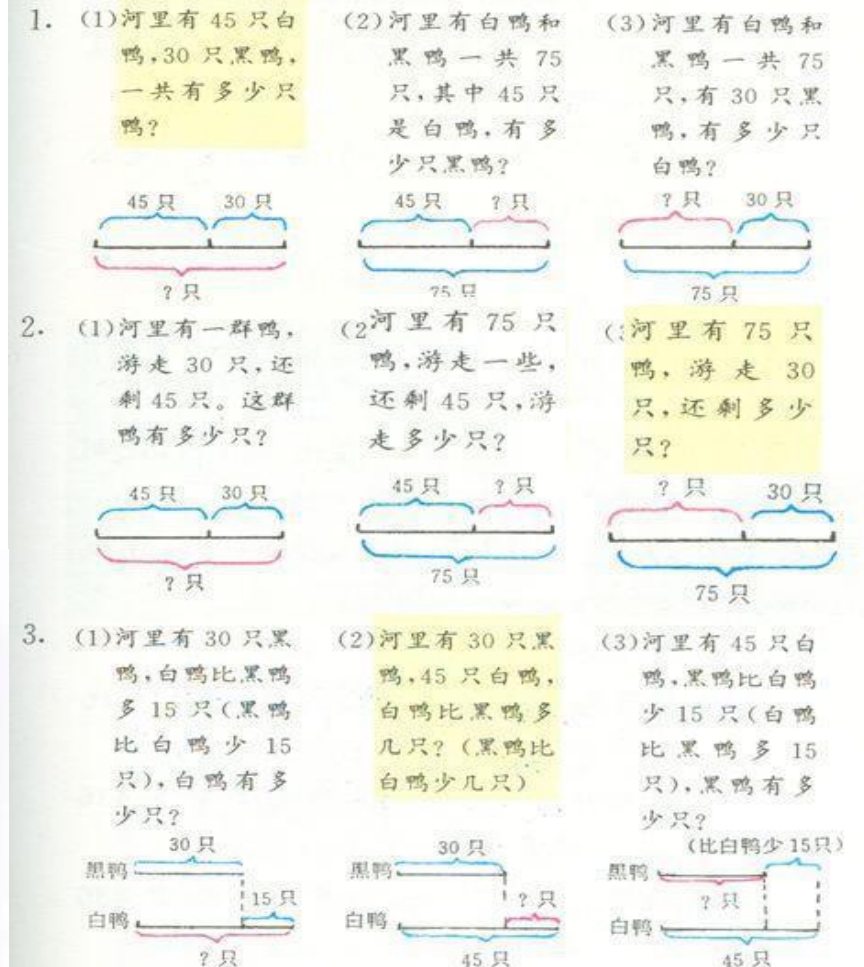 1. (1)河里有 45 只白
鸭,30 只黑鸭,
一共有多少只
鸭?
45 只 30 只
? 只
(2)河里有白鸭和
黑鸭一共 75
只,其中 45 只
是白鸭,有多
少只黑鸭?
45 只 ? 只
75 只
(3)河里有白鸭和
黑鸭一共 75
只,有 30 只黑
鸭,有多少只
白鸭?
? 只 30 只
75 只
2. (1)河里有一群鸭,
游走 30 只,还
剩 45 只。这群
鸭有多少只?
45 只 30 只
? 只
(2河里有 75 只
鸭,游走一些,
还剩 45 只,游
走多少只?
45 只 ? 只
75 只
(3河里有 75 只
鸭,游走 30
只,还剩多少
只?
? 只 30 只
75 只
3. (1)河里有 30 只黑
鸭,白鸭比黑鸭
多 15 只(黑鸭
比白鸭少 15
只),白鸭有多
少只?
30 只
黑鸭
15 只
白鸭
? 只
(2)河里有 30 只黑
鸭,45 只白鸭,
白鸭比黑鸭多
几只?(黑鸭比
白鸭少几只)
30 只
黑鸭
? 只
白鸭
45 只
(3)河里有 45 只白
鸭,黑鸭比白鸭
少 15 只(白鸭
比黑鸭多 15
只),黑鸭有多
少只?
(比白鸭少 15只)
黑鸭
? 只
白鸭
45 只